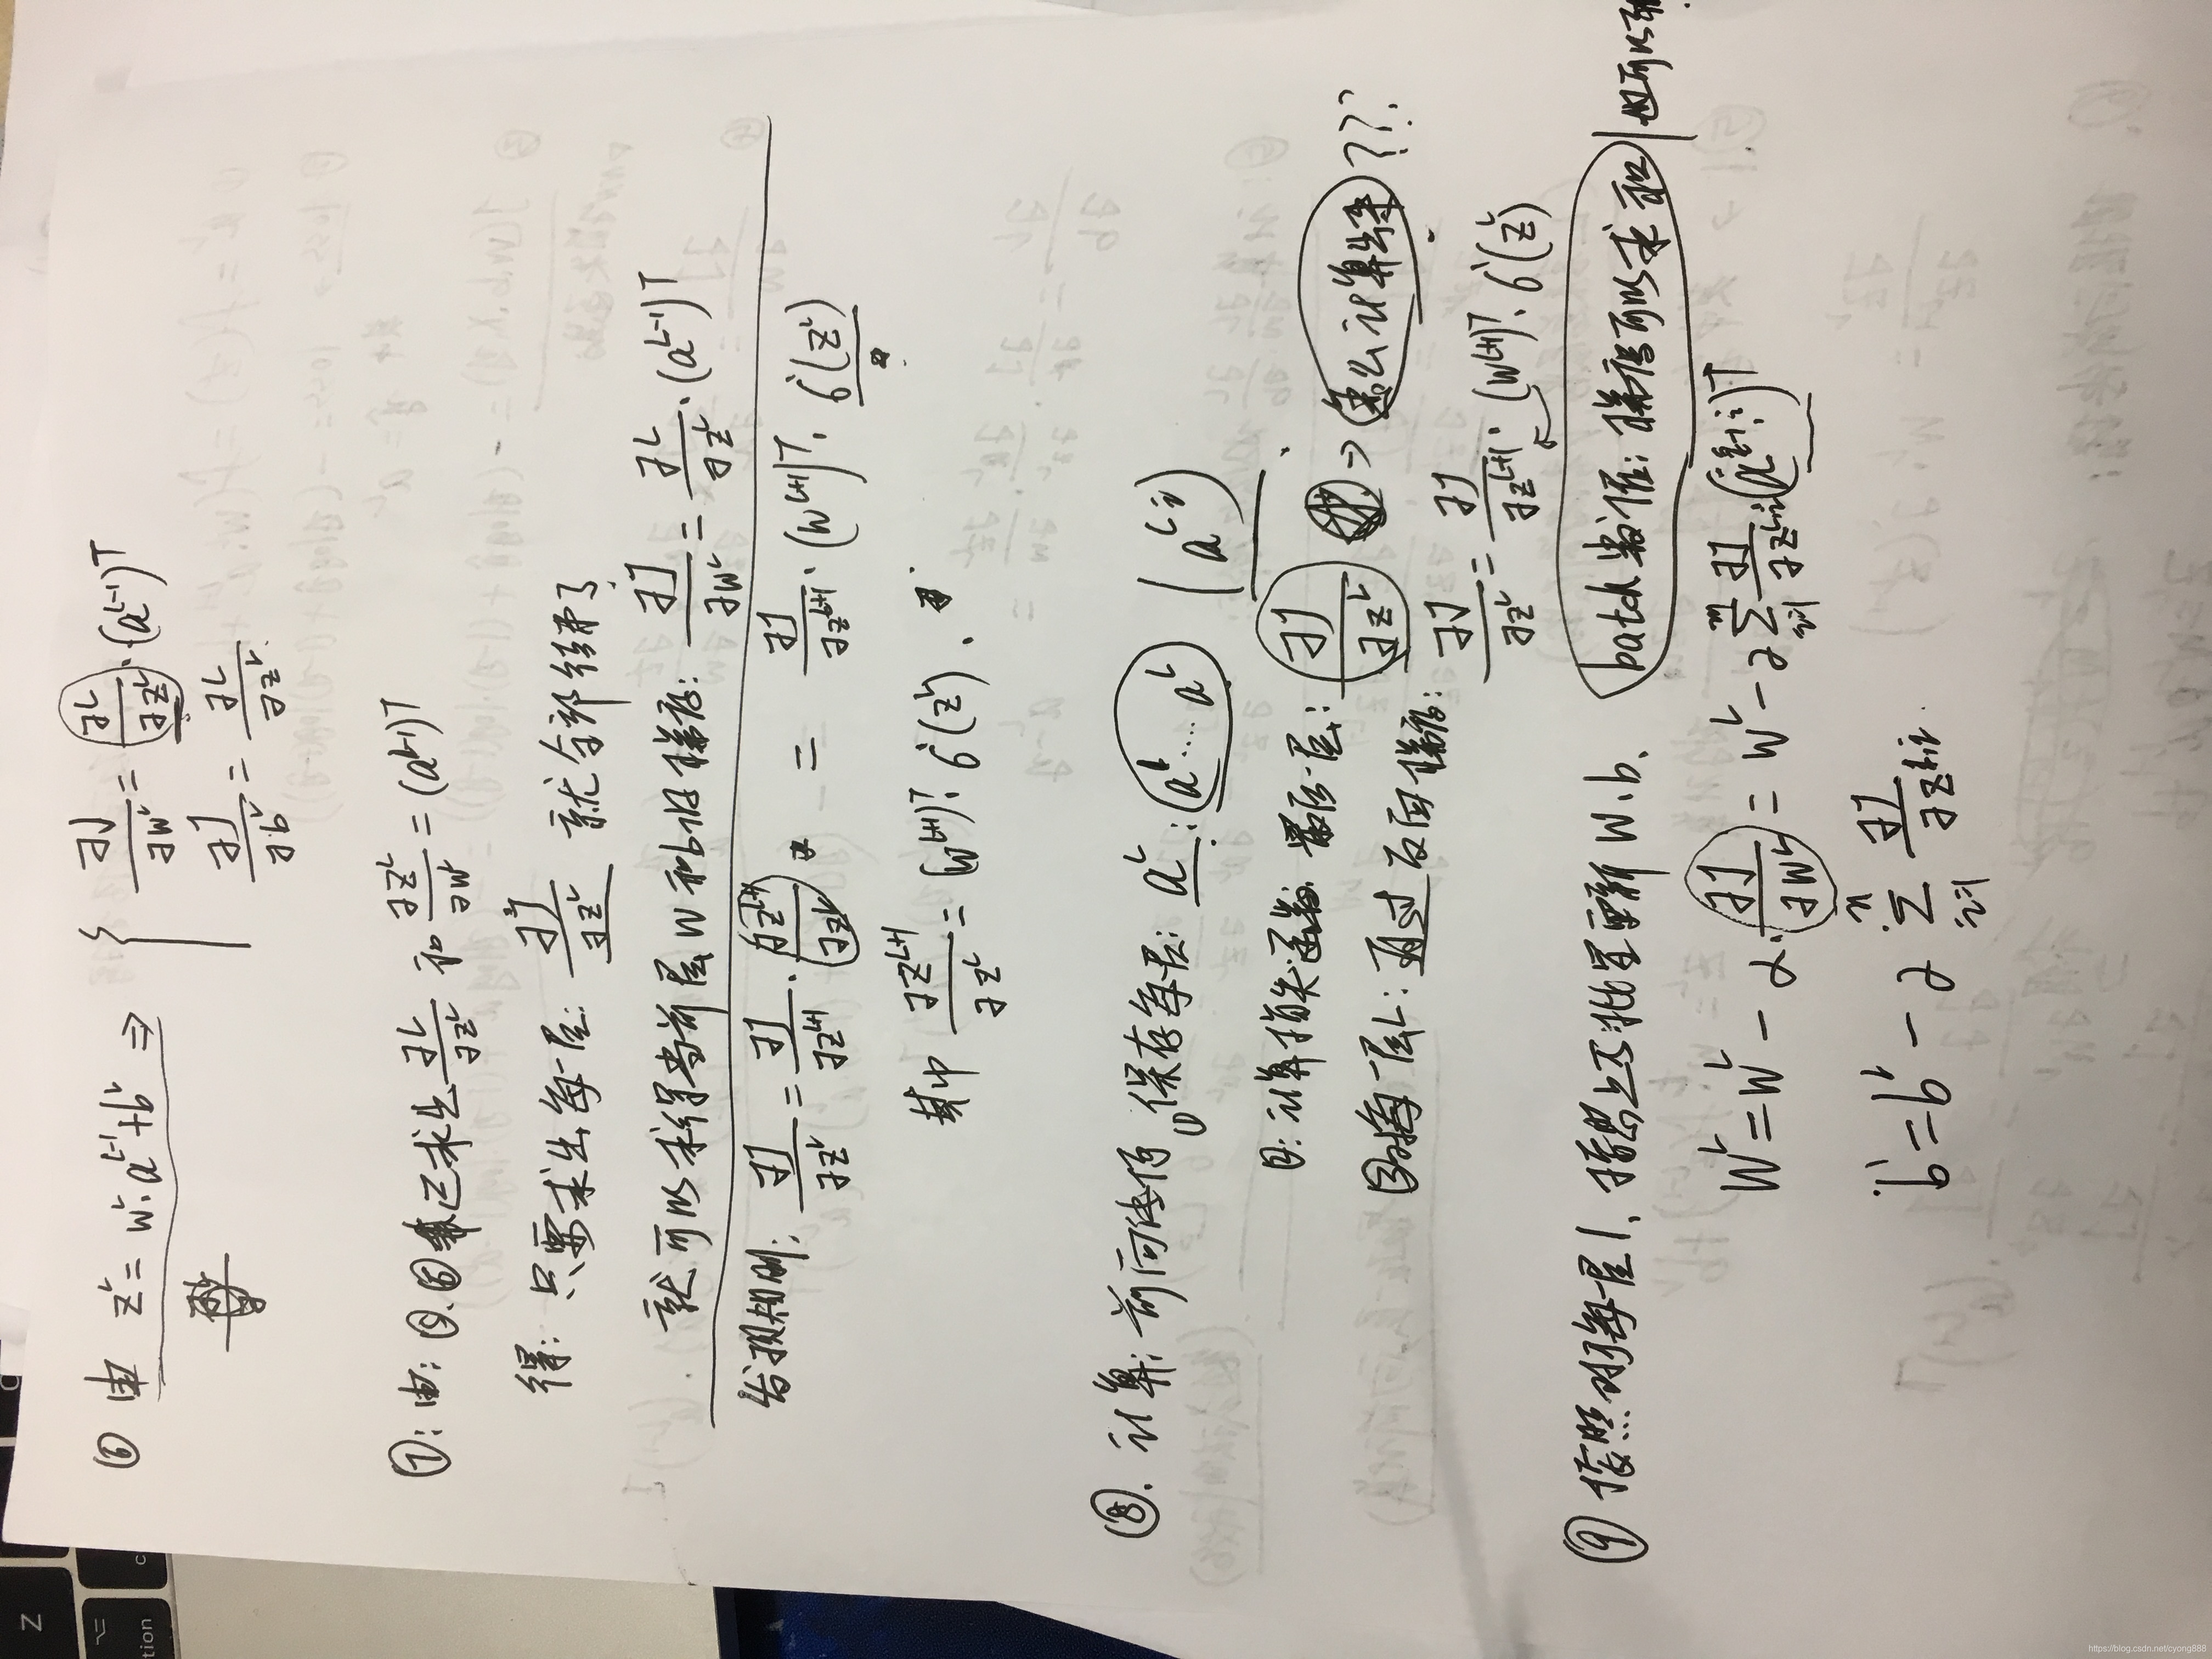 ⑥ 由 z^L = w^L·a^{L-1}+b^L ⇒ { ∂J/∂w^L = ∂L/∂z^L·(a^{L-1})^T
∂J/∂b^L = ∂L/∂z^L
⑦: 由: ②.⑥ 已求出 ∂L/∂z^L 和 ∂z^L/∂w^L = (a^{L-1})^T
得: 只需求出每一层: ∂J/∂z^L 就全部结束了
就可以求得当前层 W 和 b 的梯度: ∂J/∂w^L = ∂L/∂z^L·(a^{L-1})^T
∂J/∂z^L = ∂J/∂z^{L+1}·∂z^{L+1}/∂z^L = ∂J/∂z^{L+1}·(w^{L+1})^T·σ'(z^L)
其中 ∂z^{L+1}/∂z^L = (w^{L+1})^T·σ'(z^L)
⑧. 计算: 前向传播 ① 保存每层: a^L: a^1....a^L (a^{L,i})
②: 计算损失函数 最后层: ∂J/∂z^L => 怎么计算出来???
③ 每一层L: 通过反向传播: ∂J/∂z^L = ∂J/∂z^{L+1}·(w^{L+1})^T·σ'(z^L)
⑨ 按照每一层L, 按照上次批量更新 W.b. batch 数值: 梯度
W^L = W^L - α·∂J/∂W^L = W^L - α Σ_{i=1}^{m} ∂J/∂z^{L,i}(a^{L-1,i})^T
b^L = b^L - α Σ_{i=1}^{m} ∂J/∂z^{L,i}
Z
https://blog.csdn.net/cyong888